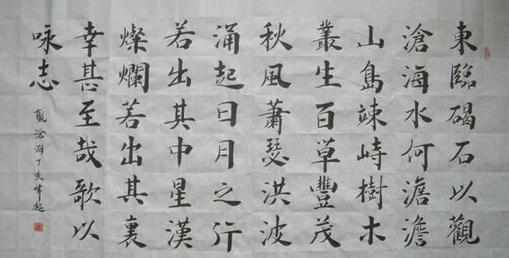 東臨碣石以觀
滄海水何澹澹
山島竦峙樹木
叢生百草豐茂
秋風蕭瑟洪波
涌起日月之行
若出其中星漢
燦爛若出其裏
幸甚至哉歌以
咏志
觀滄海